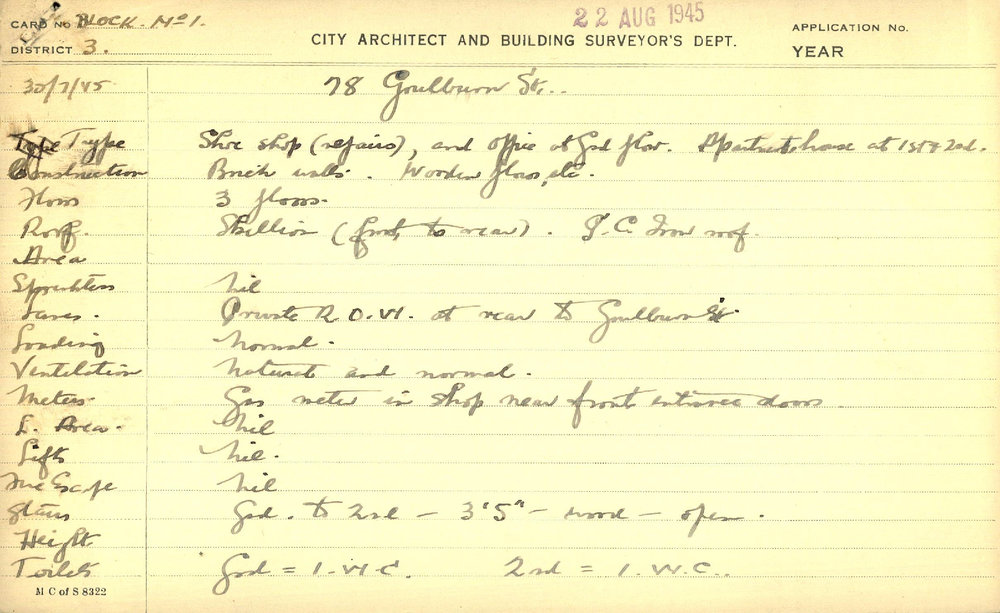 22 AUG 1945
CARD No BLOCK. No 1.
APPLICATION No.
DISTRICT 3.
CITY ARCHITECT AND BUILDING SURVEYOR'S DEPT.
YEAR
30/7/45 78 Goulburn St..
Type Shoe shop (repairs), and office at Grd flor. Apartmt. house at 1st & 2nd.
Construction Brick walls. Wooden floors, etc.
Floors 3 floors.
Roof. Skillion (front to rear). G.C. Iron roof.
Area
Sprinklers Nil
Lanes. Private R.O.W. at rear to Goulburn St.
Loading Normal.
Ventilation Natural and normal.
Meters Gas meter in shop near front entrance doors.
L. Area. Nil
Lifts Nil.
Fire Escape Nil
Stairs Grd. to 2nd — 3'5" — wood — open.
Height
Toilets Grd = 1. W.C. 2nd = 1. W.C..
M C of S 8322